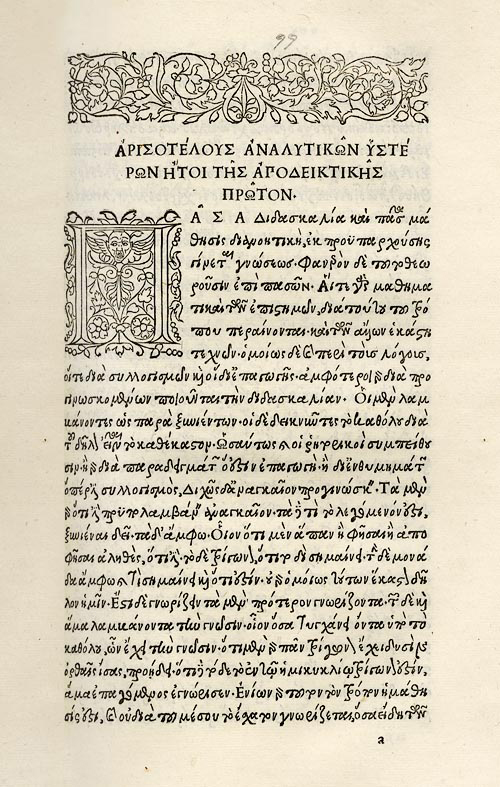 99
ἈΡΙΣΟΤΈΛΟΥΣ ἈΝΑΛΥΤΙΚΩ͂Ν ὙΣΤΈ
ΡΩΝ ΗΤΟΙ ΤΗ͂Σ ἈΠΟΔΕΙΚΤΙΚΗ͂Σ
ΠΡΩ͂ΤΟΝ·
ΠΑ͂ΣΑ Διδασκαλία καὶ πᾶσα μά
θησις διανοητικὴ, ἐκ προϋπαρχούσης
γίνεται γνώσεως· Φανερὸν δὲ τοῦτο θεω
ροῦσιν ἐπὶ πασῶν· Αἵτε γὰρ μαθημα
τικαὶ τῶν ἐπιστημῶν, διὰ τούτου τοῦ τρό
που περαίνονται· καὶ τῶν ἄλλων ἑκάστη
τεχνῶν· ὁμοίως δὲ καὶ περὶ τοὺς λόγους,
οἵτε διὰ συλλογισμῶν καὶ οἱ δι' ἐπαγωγῆς· ἀμφότεροι γὰρ διὰ προ
γινωσκομένων ποιοῦνται τὴν διδασκαλίαν· Οἱ μὲν λαμ
βάνοντες ὡς παρὰ ξυνιέντων· οἱ δὲ δεικνύντες τὸ καθόλου διὰ
τοῦ δῆλον εἶναι τὸ καθέκαστον· Ὡσαύτως καὶ οἱ ῥητορικοὶ συμπείθου
σιν· ἢ γὰρ διὰ παραδειγμάτων, ὅ ἐστιν ἐπαγωγὴ· ἢ δι' ἐνθυμημάτων,
ὅπερ ἐστὶ συλλογισμὸς, Διχῶς δ' ἀναγκαῖον προγινώσκειν· Τὰ μὲν
γὰρ ὅτι ἔστι προϋπολαμβάνειν ἀναγκαῖον· τὰ δὲ τί τὸ λεγόμενόν ἐστι,
ξυνιέναι δεῖ· τὰ δ' ἄμφω· Οἷον ὅτι μὲν ἅπαν ἢ φῆσαι ἢ ἀπο
φῆσαι ἀληθὲς, ὅτι ἔστι· τὸ δὲ τρίγωνον, ὅτι τοδὶ σημαίνει· τὴν δὲ μονά
δα ἄμφω, καὶ τί σημαίνει καὶ ὅτι ἔστιν· οὐ γὰρ ὁμοίως τούτων ἕκαστον δῆ
λον ἡμῖν· Ἔστι δὲ γνωρίζειν τὰ μὲν πρότερον γνωρίζοντα· τῶν δὲ καὶ
ἅμα λαμβάνοντα τὴν γνῶσιν· οἷον ὅσα τυγχάνει ὄντα ὑπὸ τὸ
καθόλου, ὧν ἔχει τὴν γνῶσιν· ὅτι μὲν γὰρ πᾶν τρίγωνον ἔχει δυσὶν
ὀρθαῖς ἴσας, προῄδει· ὅτι δὲ τόδε τὸ ἐν τῷ ἡμικυκλίῳ τρίγωνόν ἐστιν,
ἅμα ἐπαγόμενος ἐγνώρισεν· Ἐνίων γὰρ τοῦτον τὸν τρόπον ἡ μάθη
σίς ἐστι, καὶ οὐ διὰ τοῦ μέσου τὸ ἔσχατον γνωρίζεται, ὅσα εἴδη τῶν
a